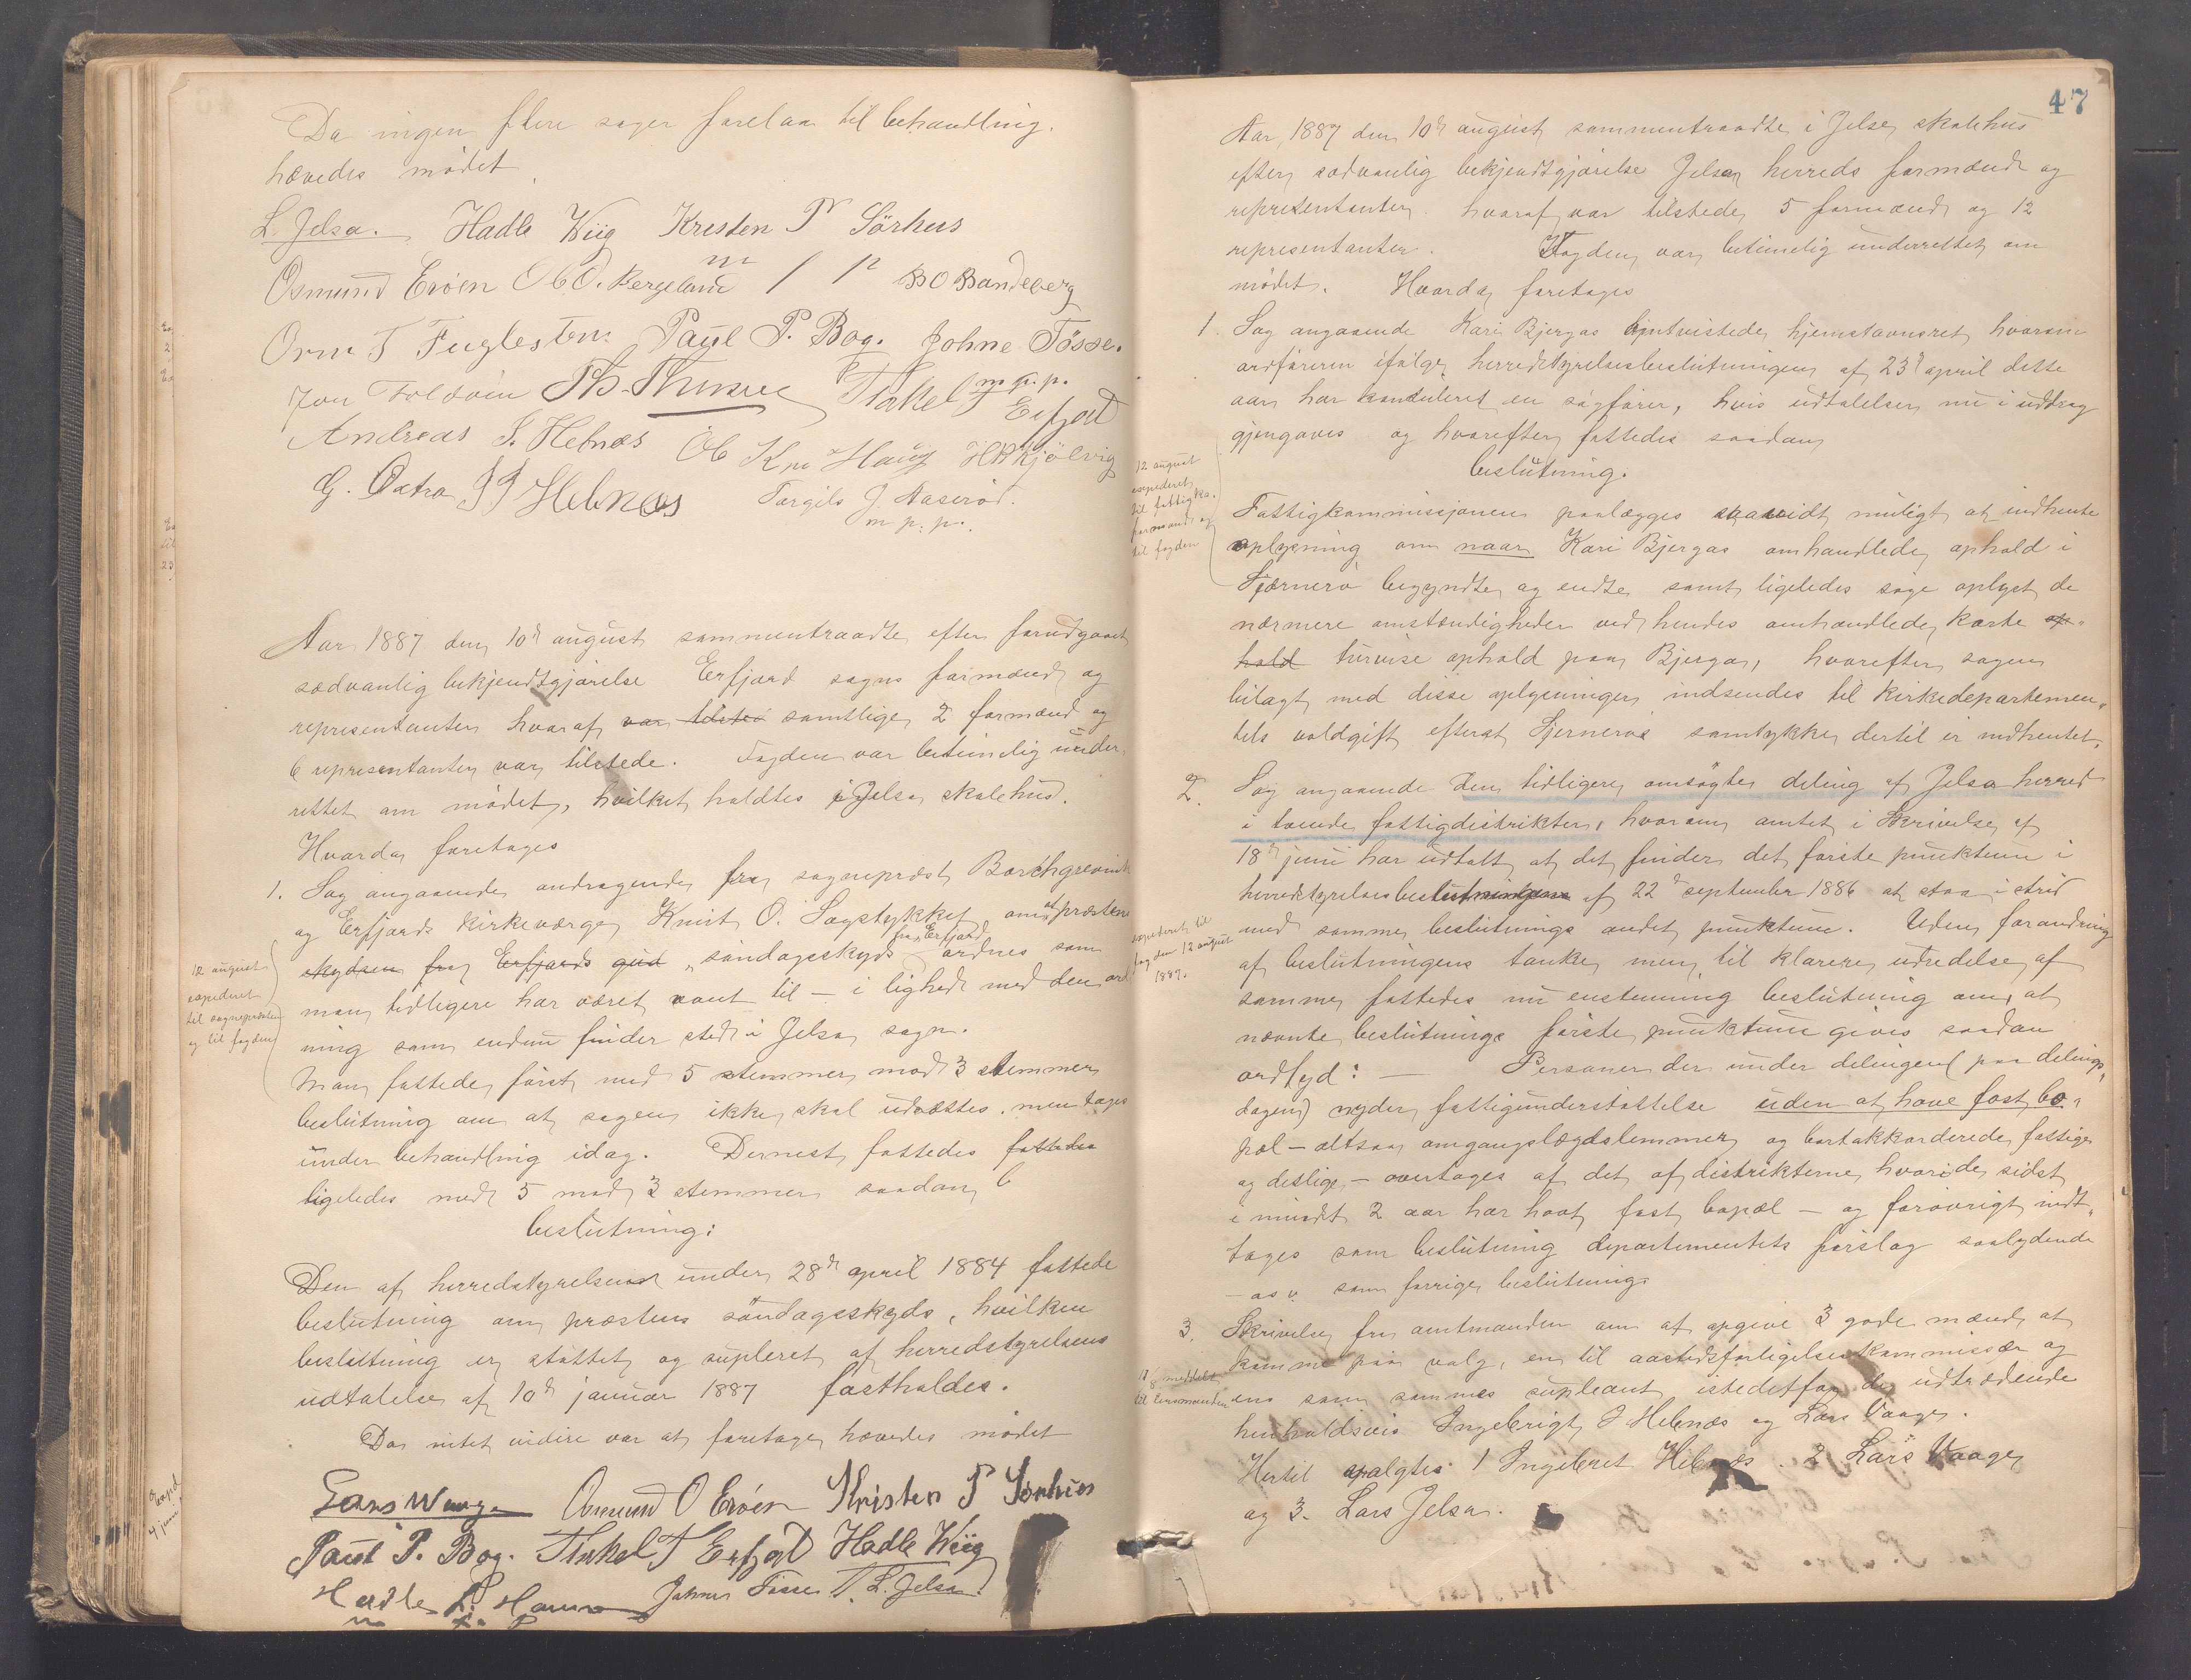 Da ingen flere sager forelaa til behandling,
hævedes mødet
L. Jelsa. Hadle Wiig Kristen P Sørhus
Osmund Erøen O. Bergeland B O Bandeberg
Orm T Fuglesten. Paul P. Bog. Johne Tøsse.
Jon Foldøen Torkel T Erfjord m. p. p.
Andreas S. Hebnæs Ole Kn Haug
G. Østra Hebnæs Torgils J. Aaserød.
m p. p.
Aar 1887 den 10de august sammentraadte efter forudgaaet
sædvanlig bekjendtgjørelse Erfjord sogns formænd og
representanter hvoraf var tilsted samtlige 2 formænd og
6 representanter var tilstede. Fogden var betimelig under-
rettet om mødet, hvilket holdtes i Jelsa skolehus.
Hvorda foretoges
1. Sag angaaende andragende fra sogneprest Borchgrevink
og Erfjords kirkeværge Knut O. Sagstykket, om at præstens
skydsen fra Erfjords gud „søndagsskyds fra Erfjord ordnes som
man tidligere har været vant til – i lighed med den ord
ning som endnu finder sted i Jelsa sogn.
12 august
expederet
til sognepræsten
og til fogden
Man fattede først med 5 stemmer mod 3 stemmer
beslutning om at sagen ikke skal udsættes, men tages
under behandling idag. Dernest fattedes fattedes
ligeledes med 5 mod 3 stemmer saadan b
beslutning:
Den af herredstyrelsen under 28de april 1884 fattede
beslutning om præstens søndagsskyds, hvilken
beslutning er støttet og supleret af herredstyrelsens
udtalelse af 10de januar 1887 fastholdes.
Da intet videre var at foretage hævedes mødet
Lars Waage Osmund O Erøen Kristen P Sørhus
Paul P. Bog. Torkel T Erfjord Hadle Wiig
Hadle L. Johne Tøsse L. Jelsa
47
Aar 1887 den 10de august sammentraadte i Jelse skolehus
efter sædvanlig bekjendtgjørelse Jelsa herreds formænd og
representanter. hvoraf var tilstede 5 formænd og 12
representanter. Fogden var betimelig underrettet om
mødet. Hvorda foretoges
1. Sag angaaende Kari Bjergas omtvistede hjemstavnsret, hvorom
ordføreren ifølge herredstyrelsesbeslutningen af 23de april dette
aar har konsuleret en sagfører, hvis udtalelser nu i uddrag
gjengaves og hvorefter fattedes saadan
beslutning.
12 august
expederet
til fattigko.
formand og
til fogden
Fattigkommissjonen paalægges saavidt muligt at indhente
oplysning om naar Kari Bjergas omhandlede ophold i
Sjærnerø begyndte og endte samt ligeledes søge oplyst de
nærmere omstændigheder ved hendes omhandlede korte op-
hold turvise ophold paa Bjerga, hvorefter sagen
bilagt med disse oplysninger indsendes til Kirkedepartemen-
tets voldgift efterat Sjernerøs samtykke dertil er indhentet.
2. Sag angaaende den tidligere omsøgte deling af Jelsa herred
i tvende fattigdistrikter, hvorom amtet i skrivelse af
18de juni har udtalt at det finder det første punktum i
herredstyrelsesbeslutningen af 22de september 1886 at staa i strid
med samme beslutnings andet punktum. Uden forandring
expederet til
fogden 12 august
1887.
af beslutningens tanke, men til klarere udredelse af
samme fattedes nu enstemmig beslutning om, at
nævnte beslutnings første punktum gives saadan
ordlyd: – Personer der under delingen (paa delings-
dagen) nyder fattigunderstøttelse uden at have fast bo-
pæl – altsaa omgangslægdslemmer og bortakkorderede fattige
og deslige – overtages af det af distrikterne, hvori de sidst
i mindst 2 aar har havt fast bopæl – og forøvrigt indt-
tages som beslutning departementets forslag saalydende
– osv. som forrige beslutning
3. Skrivelse fra amtmanden om at opgive 3 gode mænd at
komme paa valg, en til aastedsforligelseskommissær og
en som sammes supleant istedetfor de udtrædende
til lensmanden
henholdsvis Ingebrigt J Hebnæs og Lars Vaage.
Hertil valgtes 1 Ingebret Hebnæs. 2 Lars Vaage
og 3. Lars Jelsa.